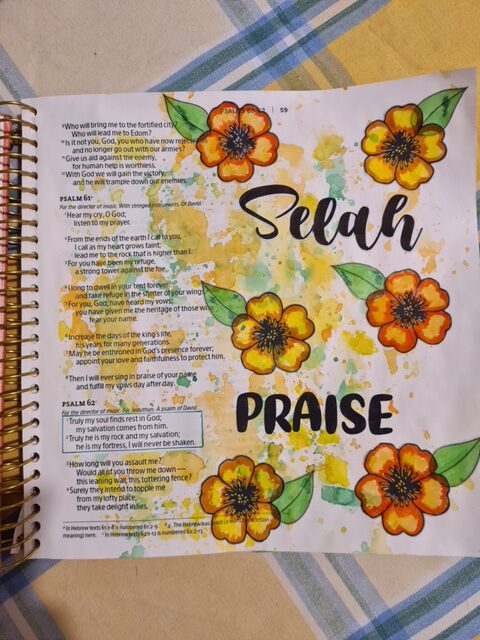 PSALMS 60–62 | 59
⁹Who will bring me to the fortified city?
Who will lead me to Edom?
¹⁰Is it not you, God, you who have now rejected us
and no longer go out with our armies?
¹¹Give us aid against the enemy,
for human help is worthless.
¹²With God we will gain the victory,
and he will trample down our enemies.
PSALM 61
For the director of music. With stringed instruments. Of David.
¹Hear my cry, O God;
listen to my prayer.
²From the ends of the earth I call to you,
I call as my heart grows faint;
lead me to the rock that is higher than I.
³For you have been my refuge,
a strong tower against the foe.
⁴I long to dwell in your tent forever
and take refuge in the shelter of your wings.
⁵For you, God, have heard my vows;
you have given me the heritage of those who
fear your name.
⁶Increase the days of the king's life,
his years for many generations.
⁷May he be enthroned in God's presence forever;
appoint your love and faithfulness to protect him.
⁸Then I will ever sing in praise of your name
and fulfill my vows day after day.
PSALM 62
For the director of music. For Jeduthun. A psalm of David.
¹Truly my soul finds rest in God;
my salvation comes from him.
²Truly he is my rock and my salvation;
he is my fortress, I will never be shaken.
³How long will you assault me?
Would all of you throw me down—
this leaning wall, this tottering fence?
⁴Surely they intend to topple me
from my lofty place;
they take delight in lies.
In Hebrew texts 61:1-8 is numbered 61:2-9.
The Hebrew has
meaning) here. In Hebrew texts 62:1-12 is numbered 62:2-13.
Selah
PRAISE